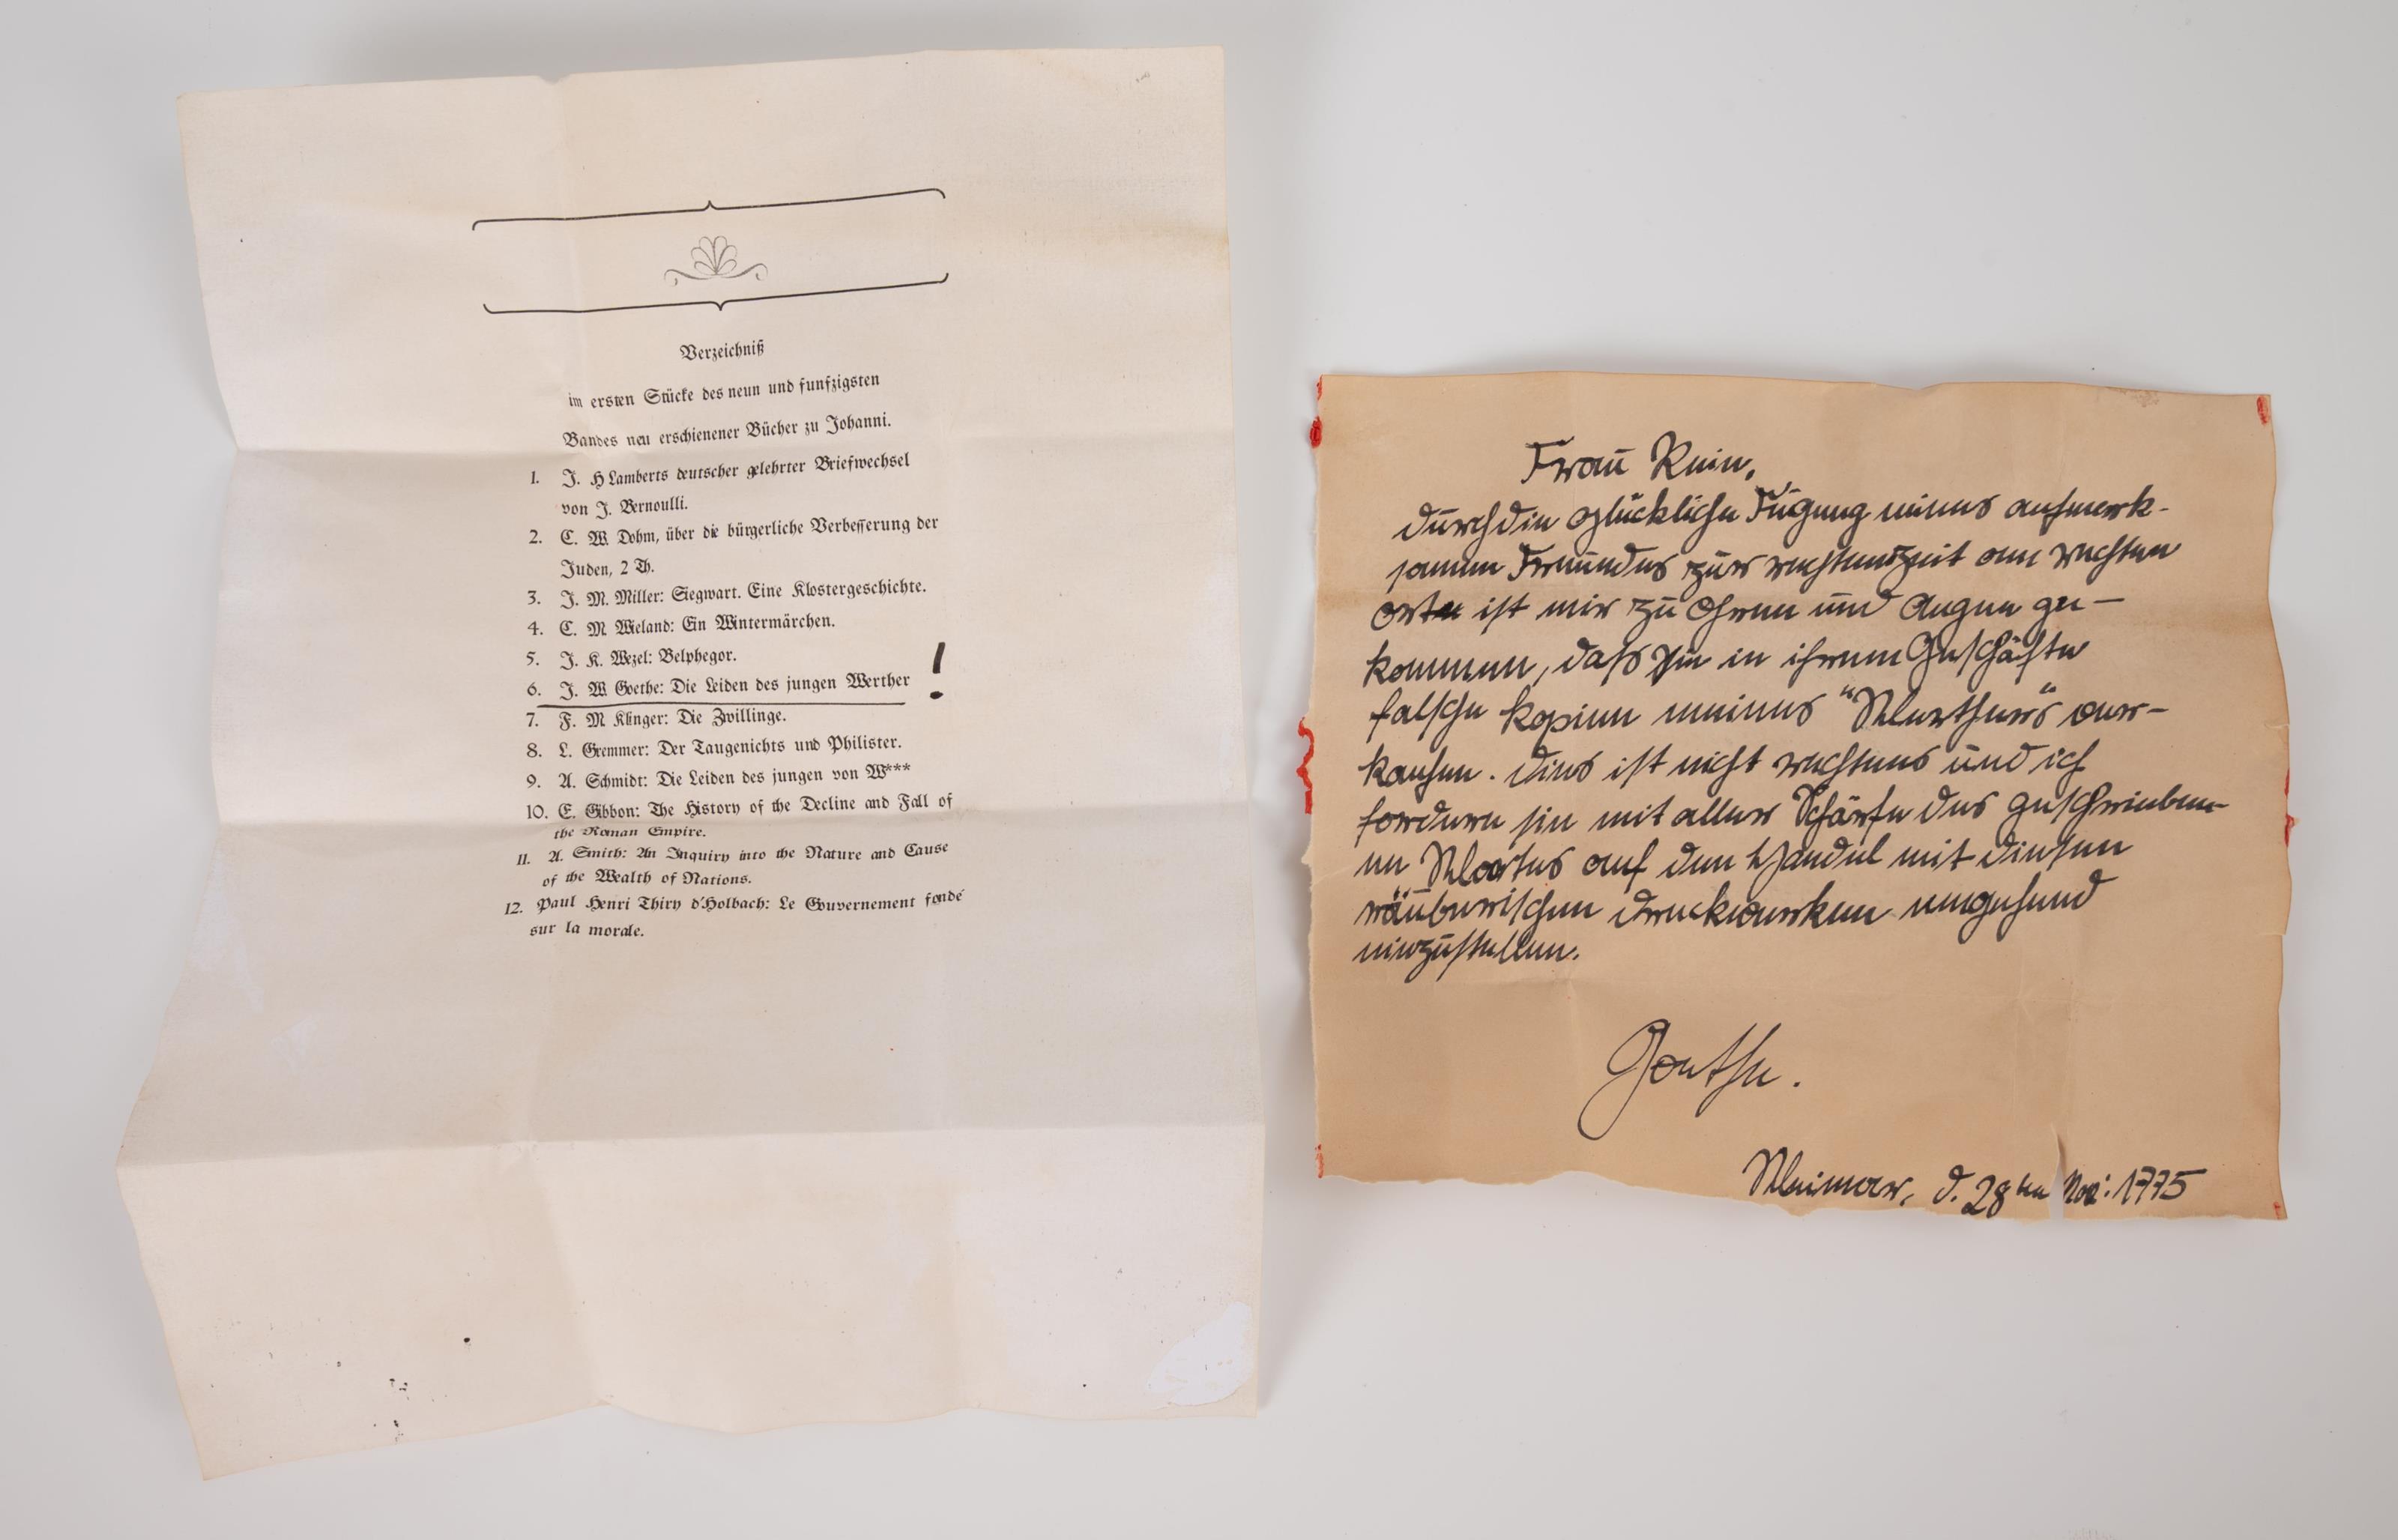 Verzeichniß
im ersten Stücke des neun und funfzigsten
Bandes neu erschienener Bücher zu Johanni.
1. J. H Lamberts deutscher gelehrter Briefwechsel
von J. Bernoulli.
2. C. W. Dohm, über die bürgerliche Verbesserung der
Juden, 2 Th.
3. J. M. Miller: Siegwart. Eine Klostergeschichte.
4. C. M Wieland: Ein Wintermärchen.
5. J. K. Wezel: Belphegor.
6. J. W Goethe: Die Leiden des jungen Werther !
7. F. M Klinger: Die Zwillinge.
8. L. Gremmer: Der Taugenichts und Philister.
9. A. Schmidt: Die Leiden des jungen von W***
10. E. Gibbon: The History of the Decline and Fall of
the Roman Empire.
11. A. Smith: An Inquiry into the Nature and Cause
of the Wealth of Nations.
12. Paul Henri Thiry d'Holbach: Le Gouvernement fondé
sur la morale.
Frau Rein,
durch die glückliche Fügung eines aufmerk-
samen Freundes zur rechten Zeit am rechten
Orte ist mir zu Ohren und Augen ge-
kommen, daß Sie in ihrem Geschäfte
falsche Kopien meines "Werthers" ver-
kaufen. Dies ist nicht rechtens und ich
fordere sie mit aller Schärfe des geschrieben-
en Wortes auf den Handel mit diesen
räuberischen Druckwerken umgehend
einzustellen.
Goethe.
Weimar, d. 28ten Nov. 1775